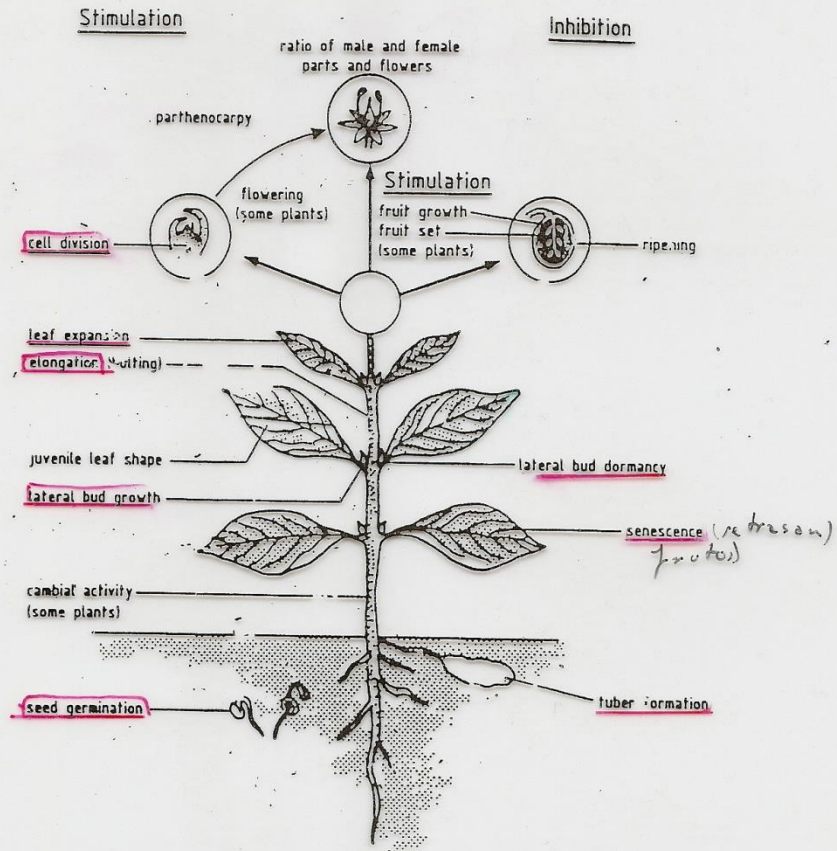 Stimulation
Inhibition
ratio of male and female
parts and flowers
parthenocarpy
flowering
(some plants)
Stimulation
fruit growth
fruit set
(some plants)
cell division
ripening
leaf expansion
elongation
juvenile leaf shape
lateral bud growth
lateral bud dormancy
senescence (retrasan)
frutos)
cambial activity
(some plants)
seed germination
tuber formation